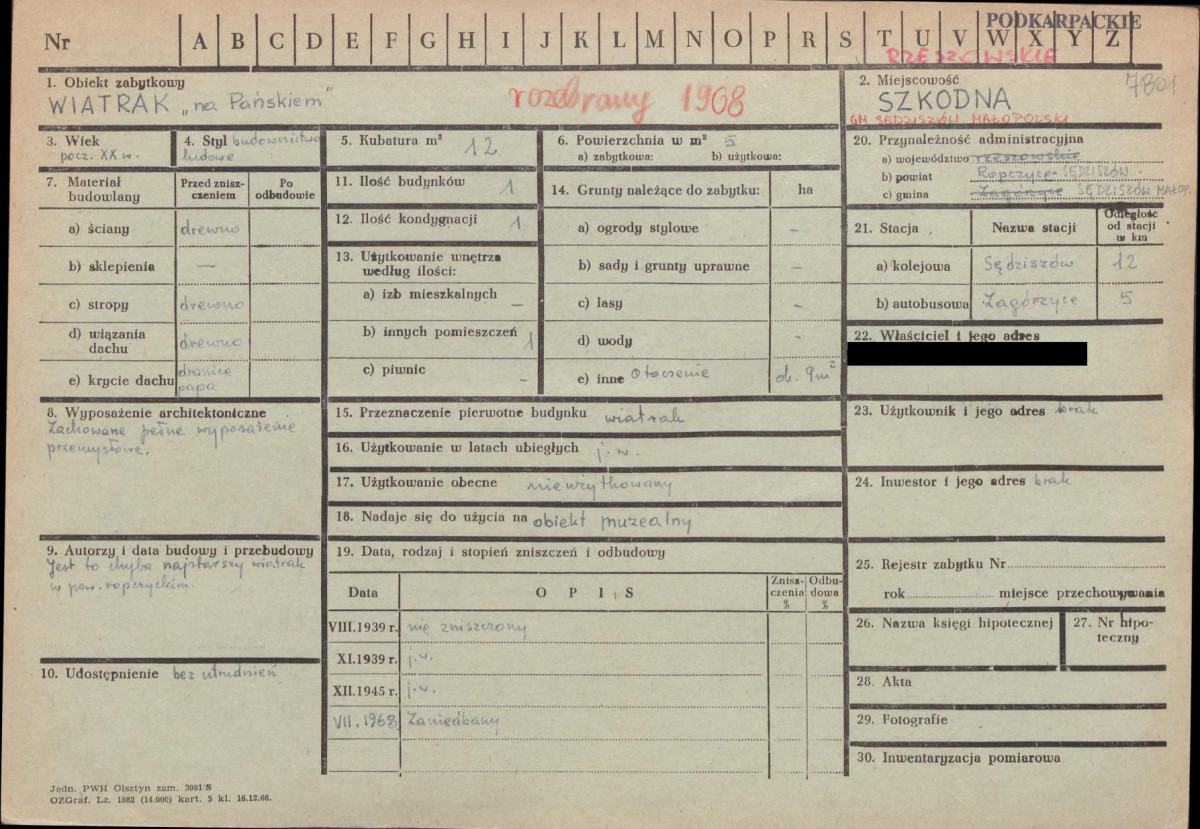 PODKARPACKIE
Nr A B C D E F G H I J K L M N O P R S T U V W X Y Z
RZESZOWSKIE
1. Obiekt zabytkowy
WIATRAK „na Pańskiem"
rozebrany 1968
2. Miejscowość
7801
SZKODNA
GM SĘDZISZÓW MAŁOPOLSKI
3. Wiek
pocz. XX w.
4. Styl budownictwo
ludowe
5. Kubatura m³ 12
6. Powierzchnia w m² 5
a) zabytkowa: b) użytkowa:
20. Przynależność administracyjna
a) województwo rzeszowskie
b) powiat Ropczyce SĘDZISZÓW
c) gmina Zagórzyce SĘDZISZÓW MAŁOP.
7. Materiał budowlany
Przed zniszczeniem
Po odbudowie
a) ściany drewno
b) sklepienia —
c) stropy drewno
d) wiązania dachu drewno
e) krycie dachu dranice papa
11. Ilość budynków 1
12. Ilość kondygnacji 1
13. Użytkowanie wnętrza
według ilości:
a) izb mieszkalnych –
b) innych pomieszczeń 1
c) piwnic –
14. Grunty należące do zabytku: ha
a) ogrody stylowe –
b) sady i grunty uprawne –
c) lasy –
d) wody -
e) inne Otoczenie ok. 9m²
21. Stacja Nazwa stacji Odległość od stacji w km
a) kolejowa Sędziszów 12
b) autobusowa Zagórzyce 5
22. Właściciel i jego adres
8. Wyposażenie architektoniczne
Zachowane pełne wyposażenie
przemysłowe.
15. Przeznaczenie pierwotne budynku wiatrak
16. Użytkowanie w latach ubiegłych j.w.
17. Użytkowanie obecne nieużytkowany
18. Nadaje się do użycia na obiekt muzealny
23. Użytkownik i jego adres brak
24. Inwestor i jego adres brak
9. Autorzy i data budowy i przebudowy
Jest to chyba najstarszy wiatrak
w pow. ropczyckim.
19. Data, rodzaj i stopień zniszczeń i odbudowy
Data O P I S Zniszczenia % Odbudowa %
VIII.1939 r. nie zniszczony
XI.1939 r. j.w.
XII.1945 r. j.w.
VII.1968 Zaniedbany
25. Rejestr zabytku Nr
rok miejsce przechowywania
26. Nazwa księgi hipotecznej
27. Nr hipoteczny
10. Udostępnienie bez utrudnień
28. Akta
29. Fotografie
30. Inwentaryzacja pomiarowa
Jedn. PWH Olsztyn zam. 3991/S
OZGraf. Lz. 1882 (14.000) kart. 5 kl. 16.12.66.